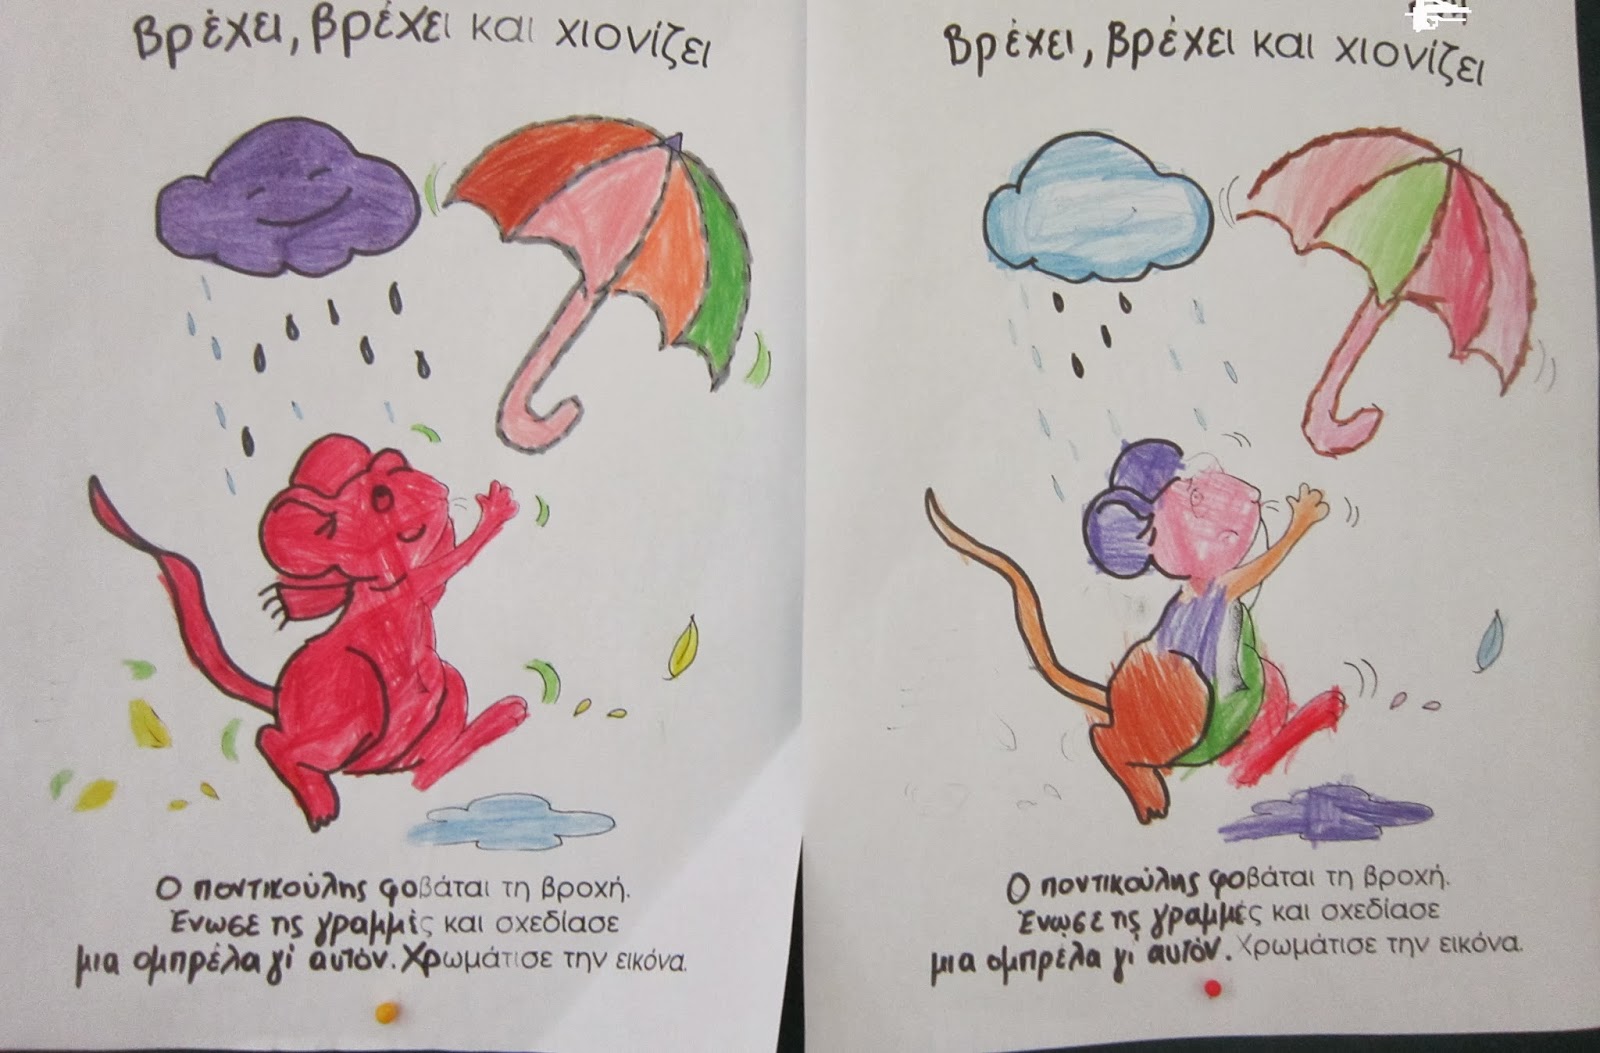 Βρέχει, βρέχει και χιονίζει
Ο ποντικούλης φοβάται τη βροχή.
Ένωσε τις γραμμές και σχεδίασε
μια ομπρέλα γι' αυτόν. Χρωμάτισε την εικόνα.
Βρέχει, βρέχει και χιονίζει
Ο ποντικούλης φοβάται τη βροχή.
Ένωσε τις γραμμές και σχεδίασε
μια ομπρέλα γι' αυτόν. Χρωμάτισε την εικόνα.